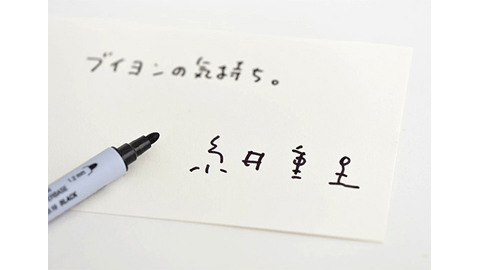 ブイヨンの気持ち。
糸井重里
1.2 mm
BLACK